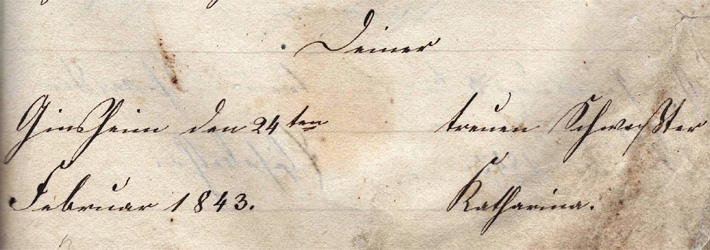 Deiner
Ginsheim den 24ten
treuen Schweßter
Februar 1843.
Katharina.